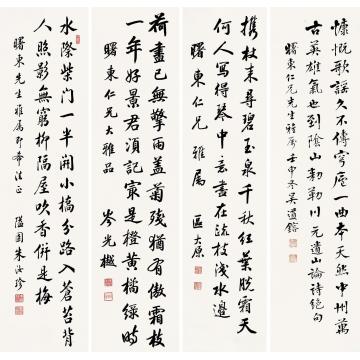 慷慨歌謠久不傳穹廬一曲本天然中州萬
古英雄氣也到陰山勅勒川元遺山論詩絕句
曙東仁兄先生雅屬壬申冬吳道鎔
攜杖來尋碧玉泉千秋紅葉脫霜天
何人寫得琴中意盡在疏枝淺水邊
曙東仁兄雅屬 區大原
荷盡已無擎雨蓋菊殘猶有傲霜枝
一年好景君須記㝡是橙黃橘綠時
曙東仁兄大雅品 岑光樾
水際柴門一半開小橋分路入蒼苔背
人照影無窮柳隔屋吹香併是梅
曙東先生雅屬即希法正 隘園朱汝珍